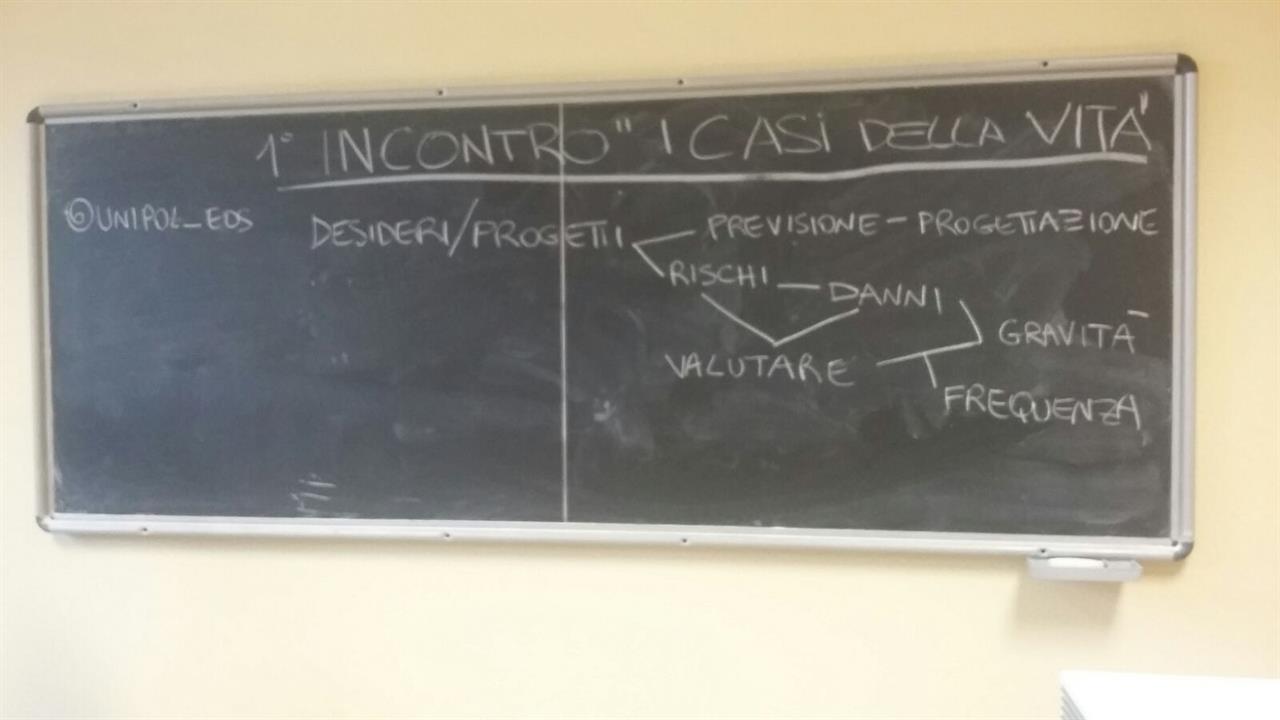 1° INCONTRO "I CASI DELLA VITA"
@UNIPOL_EOS
DESIDERI/PROGETTI
PREVISIONE - PROGETTAZIONE
RISCHI — DANNI
GRAVITÀ
VALUTARE
FREQUENZA